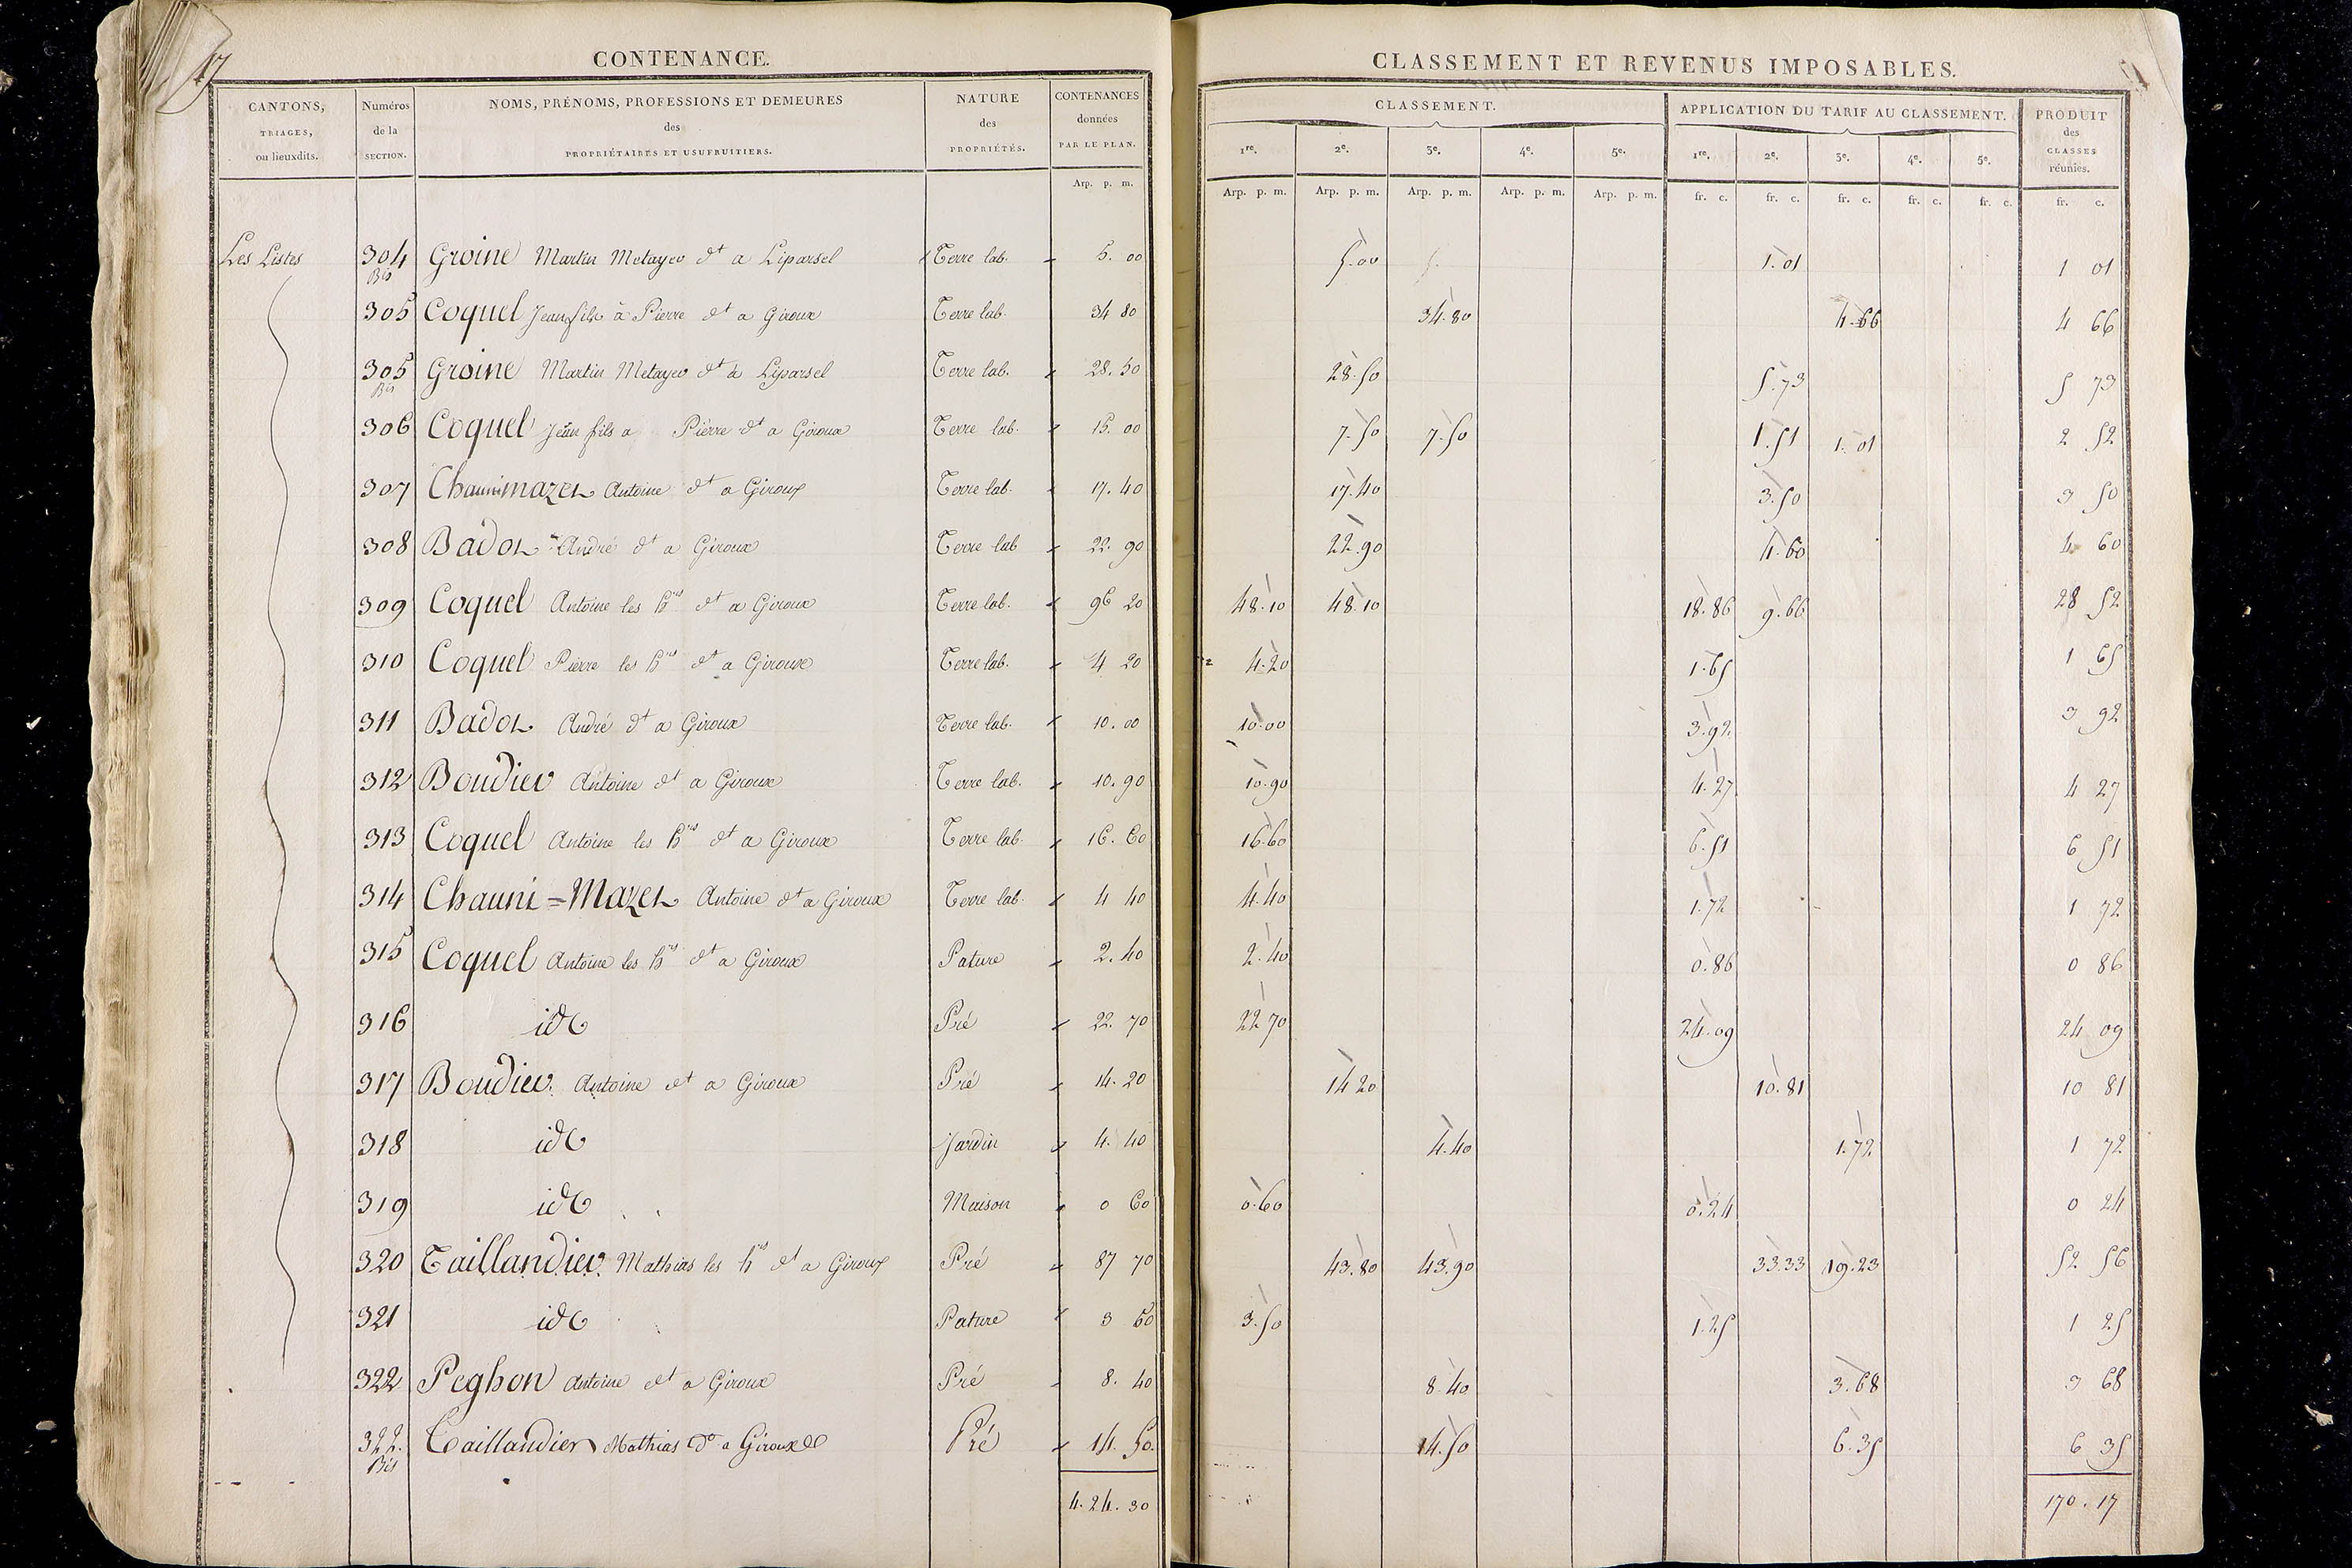 17
CONTENANCE.
CANTONS, TRIAGES, ou lieuxdits. | Numéros de la SECTION. | NOMS, PRÉNOMS, PROFESSIONS ET DEMEURES des PROPRIÉTAIRES ET USUFRUITIERS. | NATURE des PROPRIÉTÉS. | CONTENANCES données PAR LE PLAN.
Arp. p. m.
Les Listes 304 Bis Groine Martin Metayer dt a Liparsel Terre lab. 5. 00
305 Coquel Jean fils à Pierre dt a Giroux Terre lab. 34 80
305 Bis Groine Martin Metayer dt à Liparsel Terre lab. 28. 50
306 Coquel Jean fils a Pierre dt a Giroux Terre lab. 15. 00
307 Chaunimazel Antoine dt a Giroux Terre lab. 17. 40
308 Badol André dt a Giroux Terre lab 22. 90
309 Coquel Antoine les hers dt a Giroux Terre lab. 96 20
310 Coquel Pierre les hers dt a Giroux Terre lab. 4 20
311 Badol André dt a Giroux Terre lab. 10. 00
312 Boudier Antoine dt a Giroux Terre lab. 10. 90
313 Coquel Antoine les hers dt a Giroux Terre lab. 16. 60
314 Chauni=Mazel Antoine dt a Giroux Terre lab. 4 40
315 Coquel Antoine les hers dt a Giroux Pature 2. 40
316 id Pré 22. 70
317 Boudier Antoine dt a Giroux Pré 14. 20
318 id Jardin 4. 40
319 id Maison 0 60
320 Taillandier Mathias les hers dt a Giroux Pré 87 70
321 id Pature 3 50
322 Peghon Antoine dt a Giroux Pré 8. 40
322. Bis Taillandier Mathias do a Giroux Pré 14. 50.
4. 24. 30
CLASSEMENT ET REVENUS IMPOSABLES.
CLASSEMENT. | APPLICATION DU TARIF AU CLASSEMENT. | PRODUIT des CLASSES réunies.
1re. 2e. 3e. 4e. 5e. 1re. 2e. 3e. 4e. 5e.
Arp. p. m. Arp. p. m. Arp. p. m. Arp. p. m. Arp. p. m. fr. c. fr. c. fr. c. fr. c. fr. c. fr. c.
5.00 5. 1.01 1 01
34.80 4.66 4 66
28.50 5.73 5 73
7.50 7.50 1.51 1.01 2 52
17.40 3.50 3 50
22.90 4.60 4 60
48.10 48.10 18.86 9.66 28 52
4.20 1.65 1 65
10.00 3.92 3 92
10.90 4.27 4 27
16.60 6.51 6 51
4.40 1.72 1 72
2.40 0.86 0 86
22 70 24.09 24 09
14 20 10.81 10 81
4.40 1.72 1 72
0.60 0.24 0 24
43.80 43.90 33.33 19.23 52 56
3.50 1.25 1 25
8.40 3.68 3 68
14.50 6.35 6 35
170.17